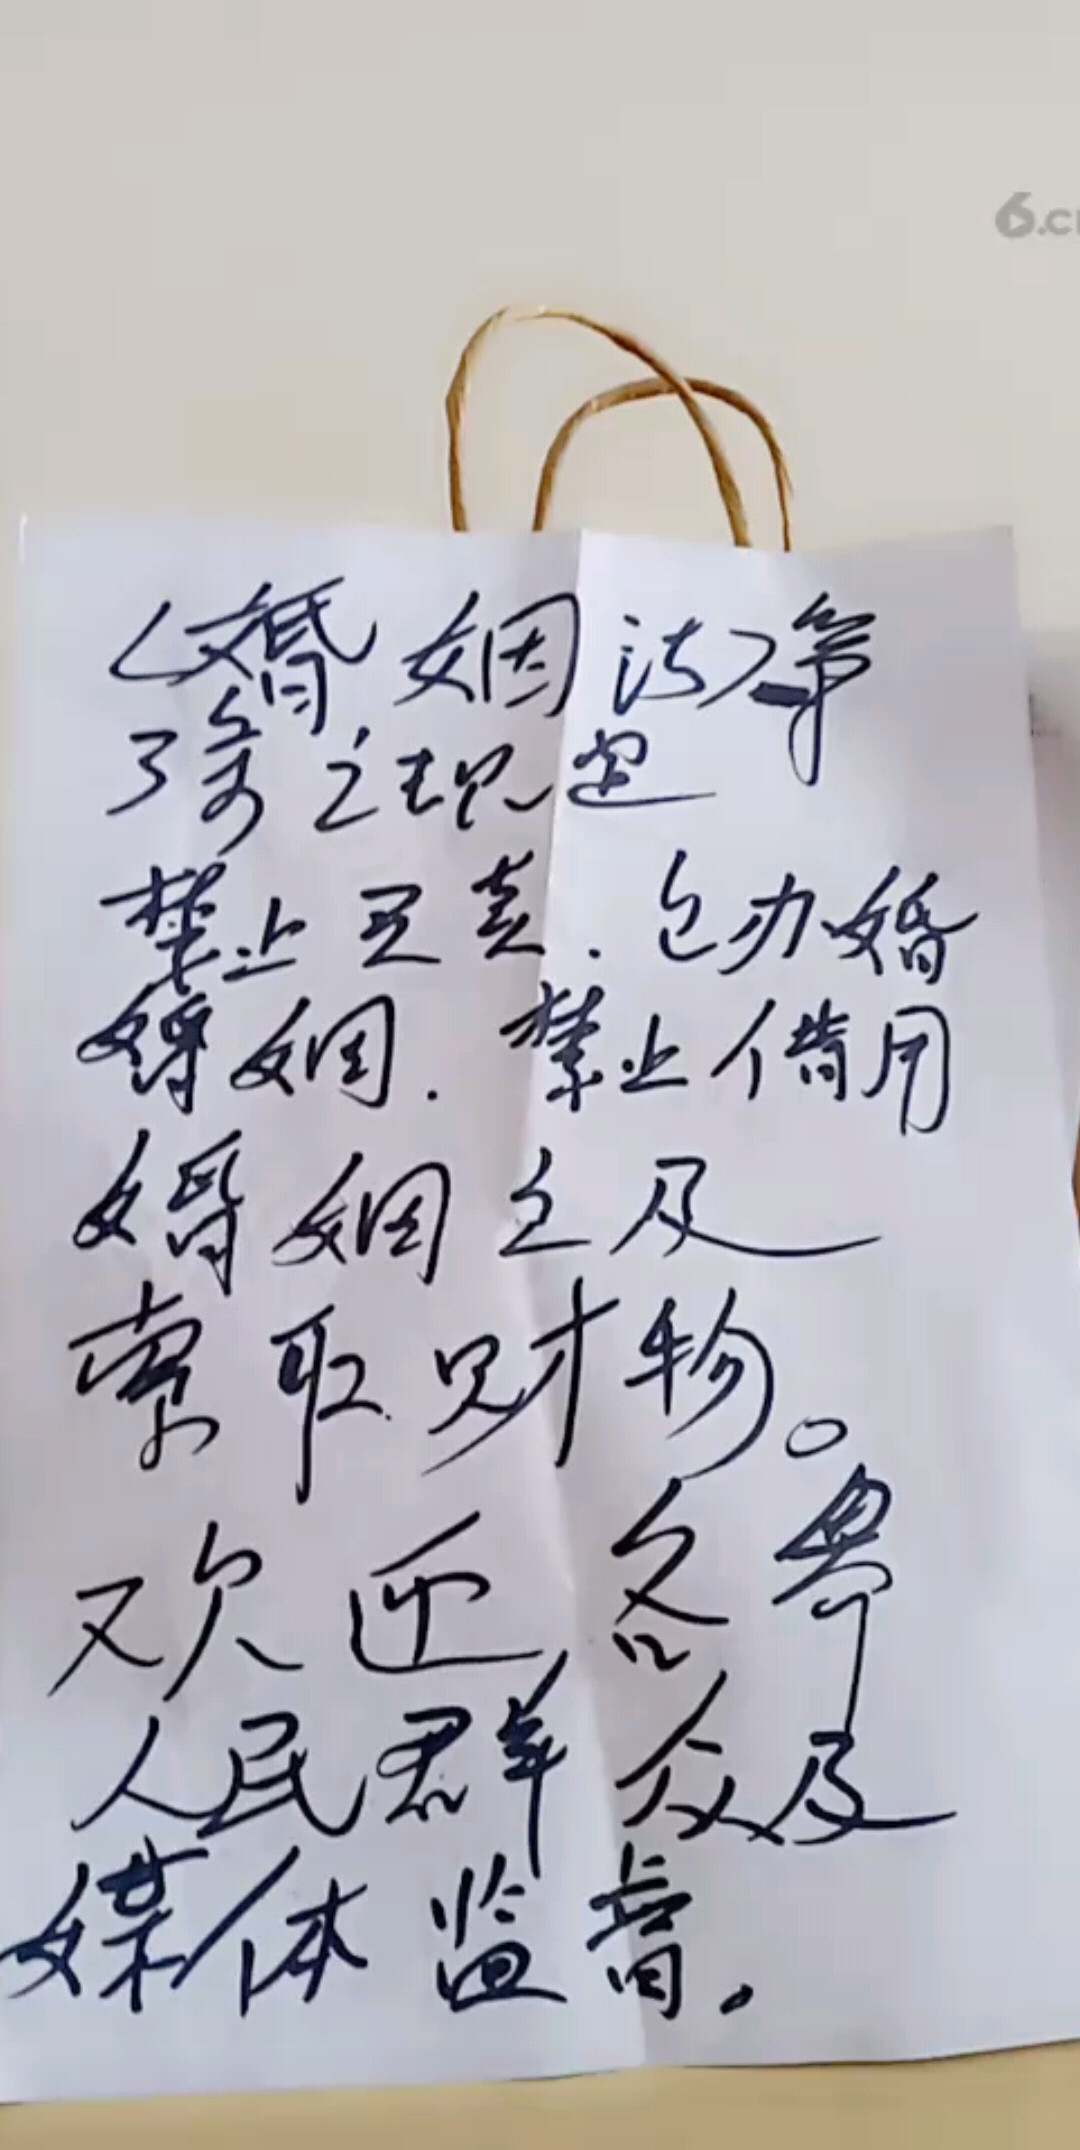 6.cn
<婚姻法>第
3条之规定
禁止买卖.包办婚
婚姻.禁止借用
婚姻之及
索取财物。
欢迎各界
人民群众及
媒体监督.